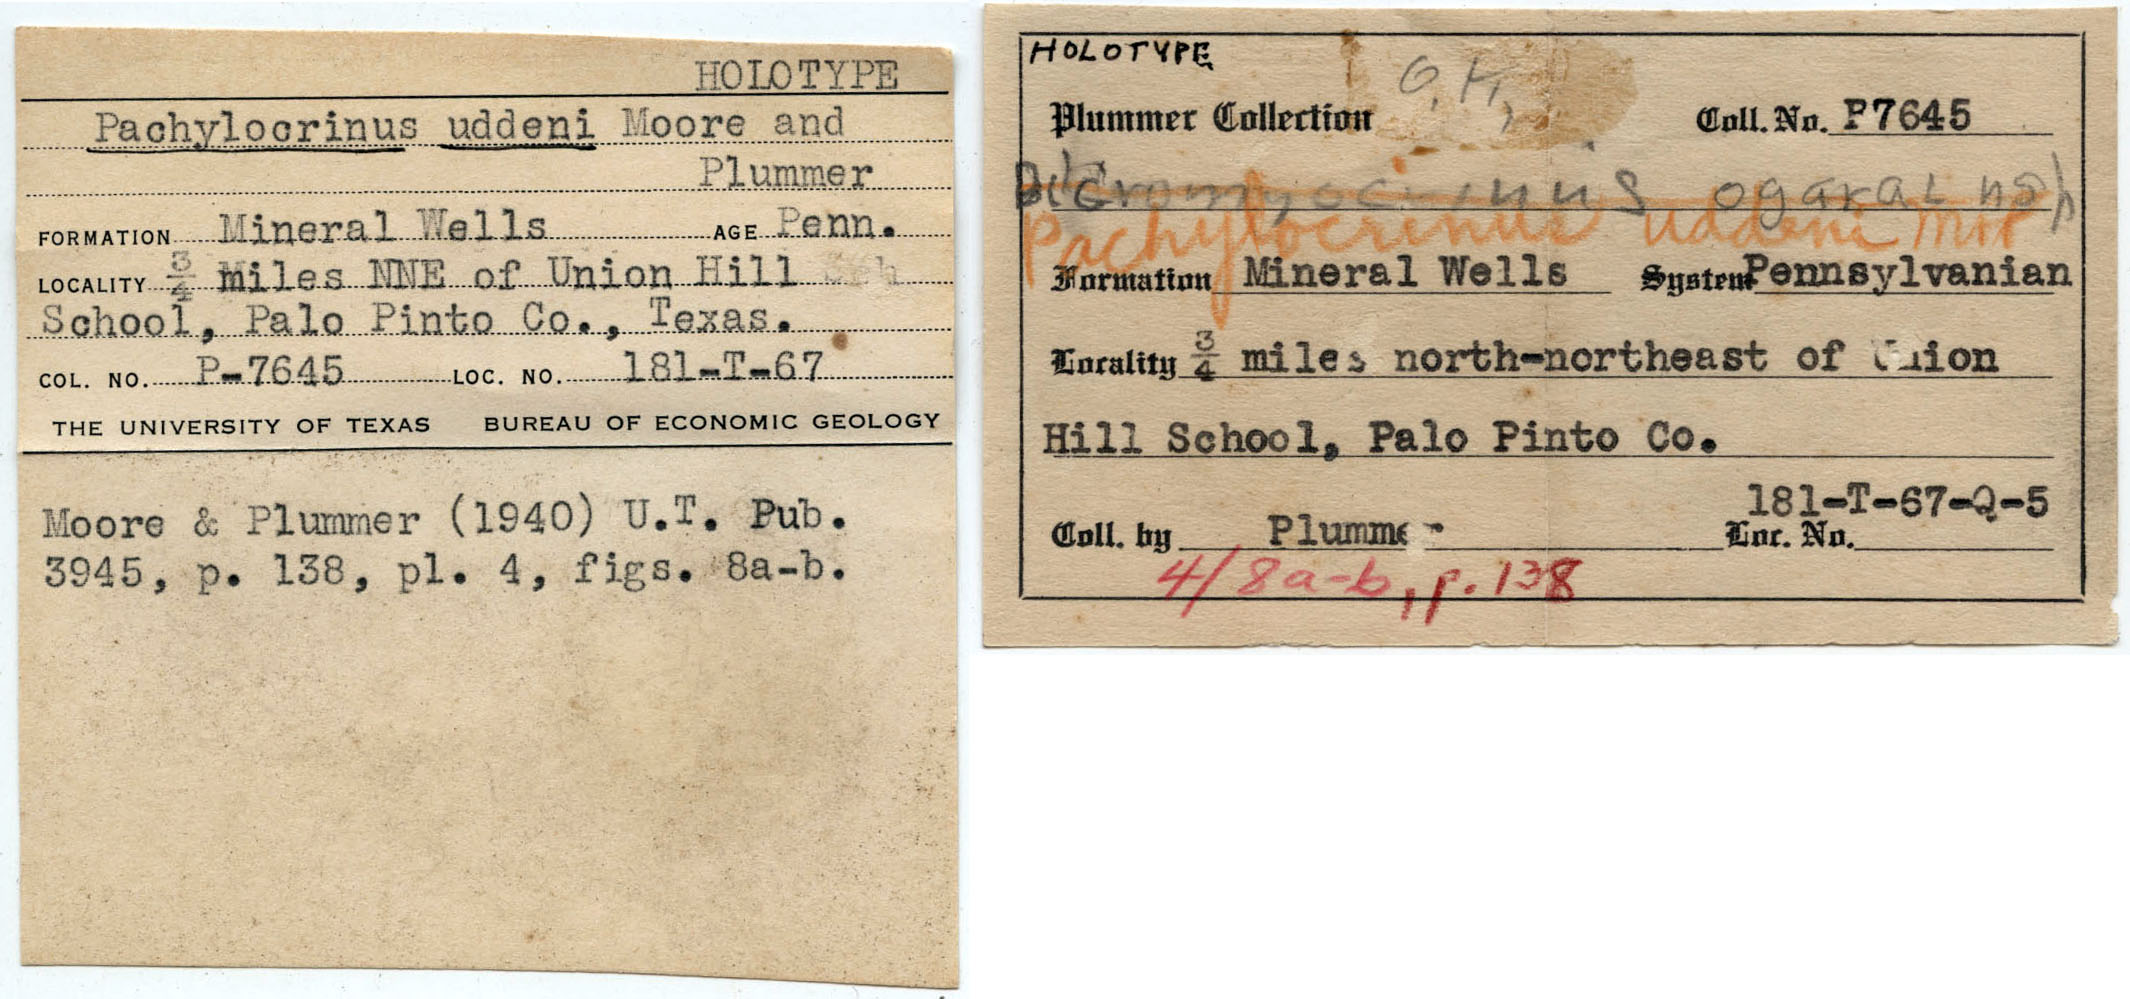 HOLOTYPE
Pachylocrinus uddeni Moore and
Plummer
FORMATION Mineral Wells AGE Penn.
LOCALITY 3/4 miles NNE of Union Hill
School, Palo Pinto Co., Texas.
COL. NO. P-7645 LOC. NO. 181-T-67
THE UNIVERSITY OF TEXAS BUREAU OF ECONOMIC GEOLOGY
Moore & Plummer (1940) U.T. Pub.
3945, p. 138, pl. 4, figs. 8a-b.
HOLOTYPE
O.K.
Plummer Collection Coll. No. P7645
Pachylocrinus uddeni M&P
Formation Mineral Wells System Pennsylvanian
Locality 3/4 miles north-northeast of Union
Hill School, Palo Pinto Co.
181-T-67-Q-5
Coll. by Plummer Loc. No.
4/8a-b, p. 138